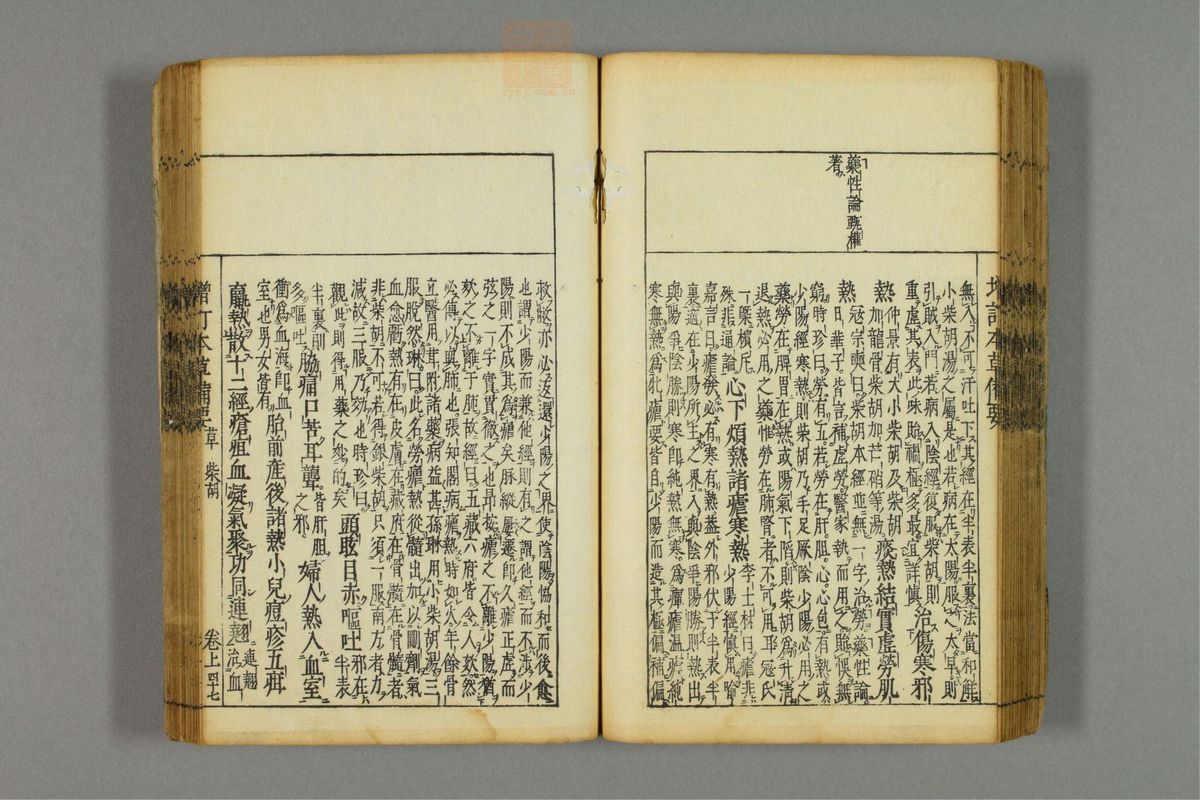 增訂本草備要
藥性論甄權
著
無入不可汗吐下其經在半表半裏法當和解
小柴胡湯之屬是也若病在太陽服之太早則
引賊入門若病入陰經復服柴胡則
重虛其表此味貽禍極多最宜詳慎 治傷寒邪
熱 仲景有大小柴胡及柴胡加龍骨柴胡加芒硝等湯 痰熱結實虛勞肌
熱 寇宗奭曰柴胡本經並無一字治勞藥性論
日華子皆言補虛勞醫家執而用之貽悞無
窮時珍曰勞有五若勞在肝胆心心包有熱或
少陽經寒熱則柴胡乃手足厥陰少陽必用之
藥勞在脾胃有熱或陽氣下陷則柴胡為升清
退熱必用之藥惟勞在肺腎者不可用耳寇氏
一槩擯斥殊非通論 心下煩熱諸瘧寒熱 李士材曰瘧非少陽經慎用喻
嘉言曰瘧發必有寒有熱盖外邪伏于半表半
裏適在少陽所主之界入與陰爭陽勝則熱出
與陽爭陰勝則寒即純熱無寒為癉瘧温瘧純
寒無熱為牝瘧要皆自少陽而造其極偏補偏
救敝亦必返還少陽之界使陰陽協和而後愈
也謂少陽而兼他經則有之謂他經而不涉少
陽則不成其為瘧矣脉縱屢遷即久瘧正虛而
弦之一字實貫徹之也昂按瘧之不離少陽猶
欬之不離于肺故經曰五藏六府皆令人欬然
必傳以與肺也張知閣病瘧熱時如火年餘骨
立醫用茸附諸藥病益甚孫琳用小柴胡湯三
服脫然琳曰此名勞瘧熱從髓出加以剛劑氣
血愈虧熱有在皮膚在藏府在骨髓在骨髓者
非柴胡不可若得銀柴胡只須一服南方者力
減故三服乃效也時珍曰
觀此則得用藥之妙的矣 頭眩目赤嘔吐 邪在半表
半裏則多嘔吐 脇痛口苦耳聾 皆肝胆之邪 婦人熱入血室
衝為血海即血室也男女皆有 胎前產後諸熱小兒痘疹五疳
羸熱散十二經瘡疽血凝氣聚功同連翹 連翹治血
增訂本草備要 草 柴胡 卷上 四十七